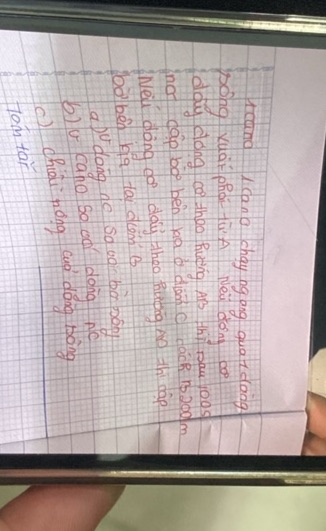 1 cano chạy ngang qua 1 dòng
sông xuất phát từ A Nếu động cơ
đẩy động cơ theo hướng AB thì sau 100s
nó cập bờ bên kia ở điểm C cách B 200m
Nếu động cơ đẩy theo hướng AD thì cập
bờ bên kia tại điểm B
a) v dòng nc so với bờ sông
b) v cano so với dòng nc
c) chiều rộng của dòng sông
Tóm tắt